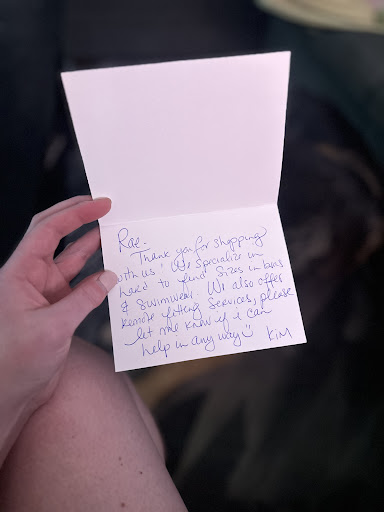 Rae.
Thank you for shopping
with us! We specialize in
hard to find sizes in bras
& swimwear. We also offer
remote fitting services, please
let me know if i can
help in any way☺ KiM